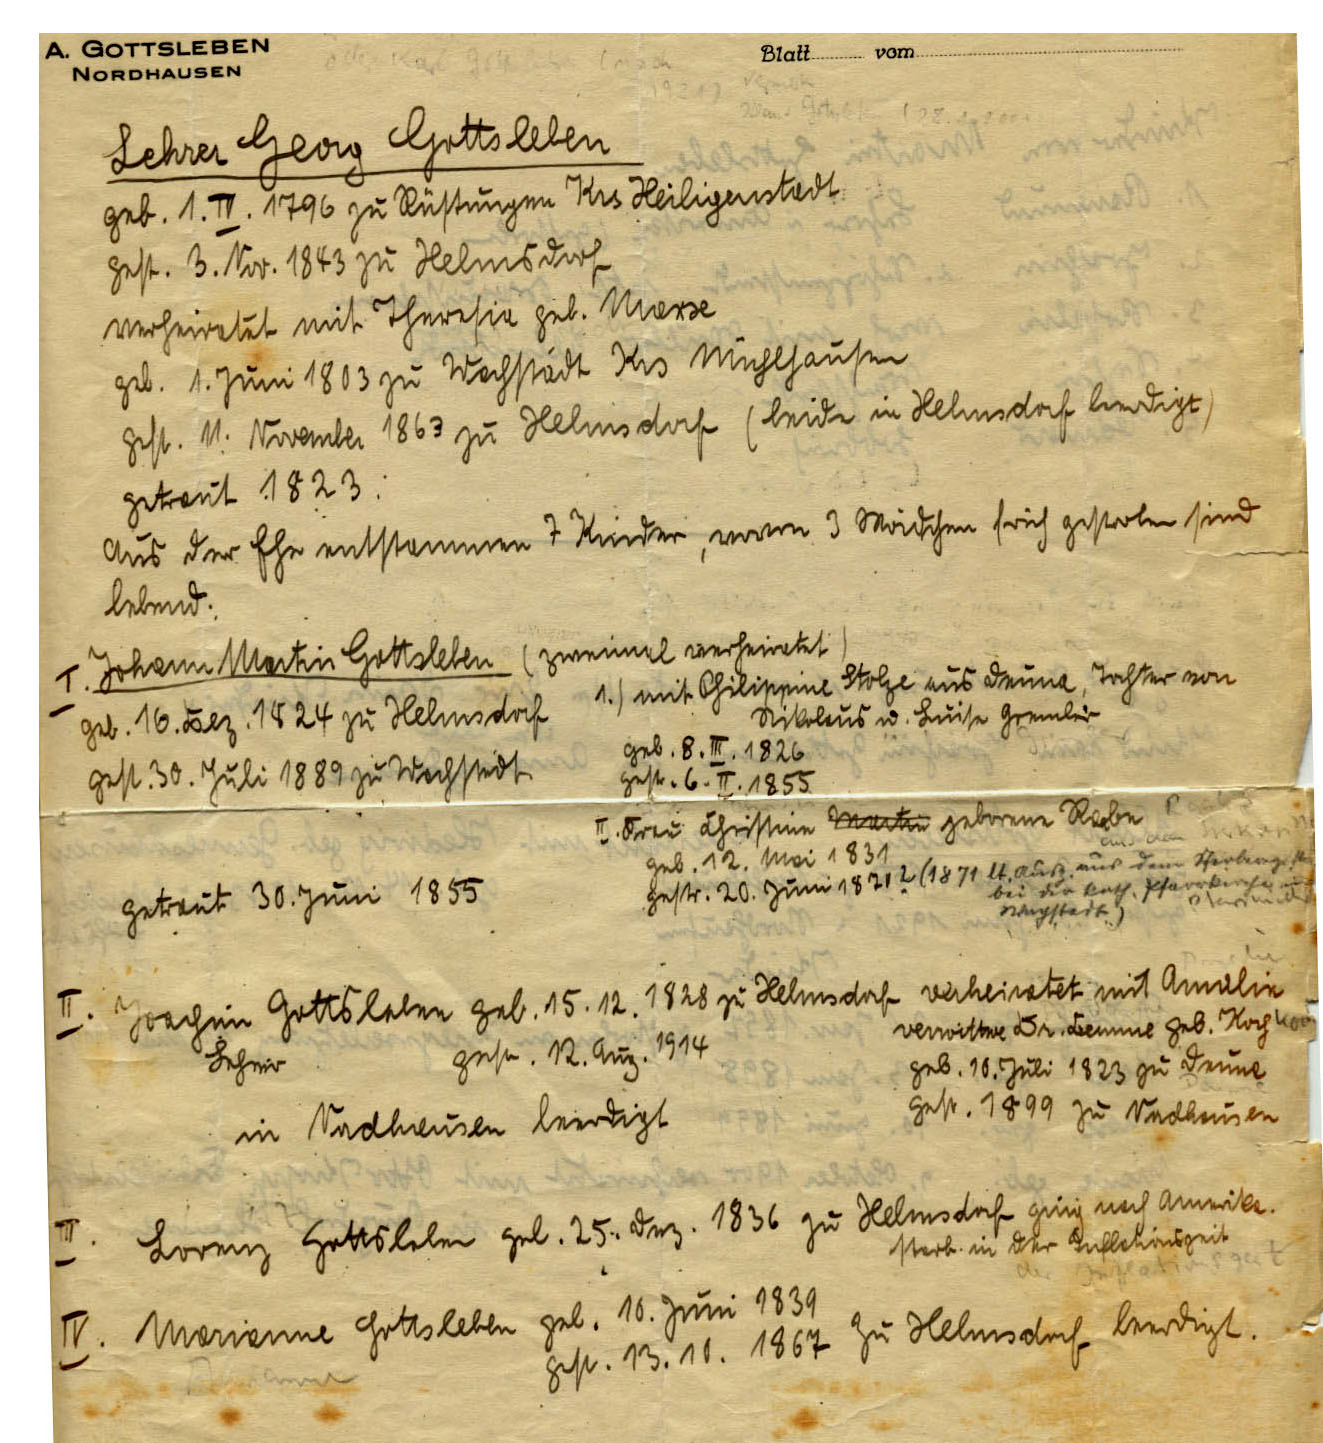 A. GOTTSLEBEN
NORDHAUSEN
Blatt vom
Lehrer Georg Gottsleben
geb. 1. IV. 1796 zu Rüstungen Krs Heiligenstadt
gest. 3. Nov. 1843 zu Helmsdorf
verheiratet mit Theresia geb. Marx
geb. 1. Juni 1803 zu Wachstädt Krs Mühlhausen
gest. 11. November 1863 zu Helmsdorf (beide in Helmsdorf beerdigt)
getraut 1823.
Aus der Ehe entstammen 7 Kinder, wovon 3 Mädchen früh gestorben sind
lebend:
I. Johann Martin Gottsleben (zweimal verheiratet)
1.) mit Philippine Stolze aus Deuna, Tochter von
Nikolaus u. Luise Gremler
geb. 16. Dez. 1824 zu Helmsdorf
geb. 8. III. 1826
gest. 30. Juli 1889 zu Wachstedt
gest. 6. II. 1855
II. Frau Christine Martin geborene Rabe
geb. 12. Mai 1831
getraut 30. Juni 1855
gestr. 20. Juni 1871? (1871 lt. Ausz. aus dem
bei der kath. Pfarrkirche
Wachstedt)
II. Joachim Gottsleben geb. 15. 12. 1828 zu Helmsdorf verheiratet mit Amalie
verwittwe Dr. Demme geb. Koch
Lehrer gest. 12. Aug. 1914
geb. 10. Juli 1823 zu Deuna
gest. 1899 zu Nordhausen
in Nordhausen beerdigt
III. Lorenz Gottsleben geb. 25. Dez. 1836 zu Helmsdorf ging nach Amerika.
starb in der Inflationszeit
der Inflationszeit
IV. Marianne Gottsleben geb. 10. Juni 1839
gest. 13. 10. 1867 zu Helmsdorf beerdigt.